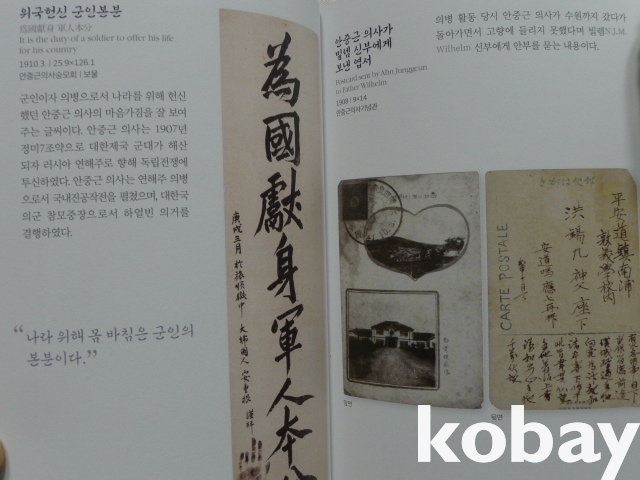 위국헌신 군인본분
爲國獻身 軍人本分
It is the duty of a soldier to offer his life
for his country
1910.3. | 25.9×126.1
안중근의사숭모회 | 보물
군인이자 의병으로서 나라를 위해 헌신
했던 안중근 의사의 마음가짐을 잘 보여
주는 글씨이다. 안중근 의사는 1907년
정미7조약으로 대한제국 군대가 해산
되자 러시아 연해주로 향해 독립전쟁에
투신하였다. 안중근 의사는 연해주 의병
으로서 국내진공작전을 펼쳤으며, 대한국
의군 참모중장으로서 하얼빈 의거를
결행하였다.
“나라 위해 몸 바침은 군인의
본분이다.”
為國獻身軍人本分
庚戌三月 於旅順獄中 大韓國人 安重根 謹拜
안중근 의사가
빌렘 신부에게
보낸 엽서
Postcard sent by Ahn Junggeun
to Father Wilhelm
1908 | 9×14
안중근의사기념관
의병 활동 당시 안중근 의사가 수원까지 갔다가
돌아가면서 고향에 들리지 못했다며 빌렘N.J.M.
Wilhelm 신부에게 안부를 묻는 내용이다.
CARTE POSTALE
平安道鎭南浦
敦義學校內
洪錫九 神父 座下
뒷면
앞면
kobay